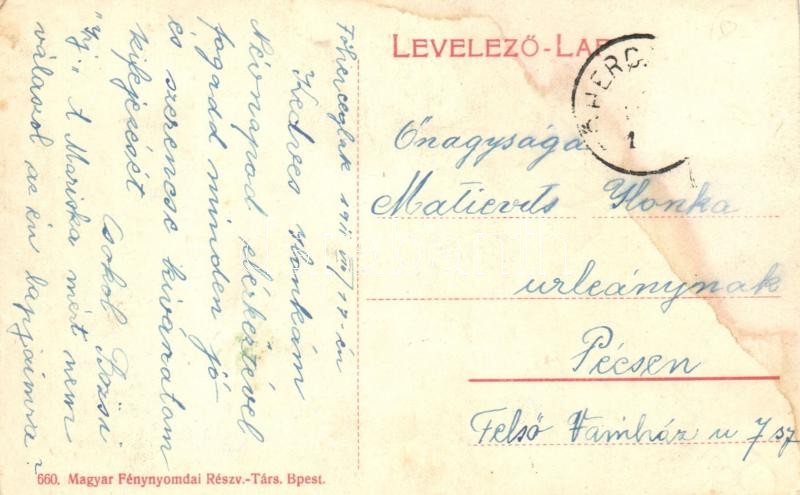 LEVELEZŐ-LAP
KHERC
1
Őnagysága
Matievits Ilonka
urleánynak
Pécsen
Felső Vámház u 7 sz
Főherceglak 1911 VIII/17-én
Kedves Ilonkám
Névnapod elérkezésével
fogadd minden jó
és szerencse kivánatom
kifejezését
Csókol Rózsi
"Ny." A Mariska mért nem
válaszol az én lapjaimra?
660. Magyar Fénynyomdai Részv.-Társ. Bpest.